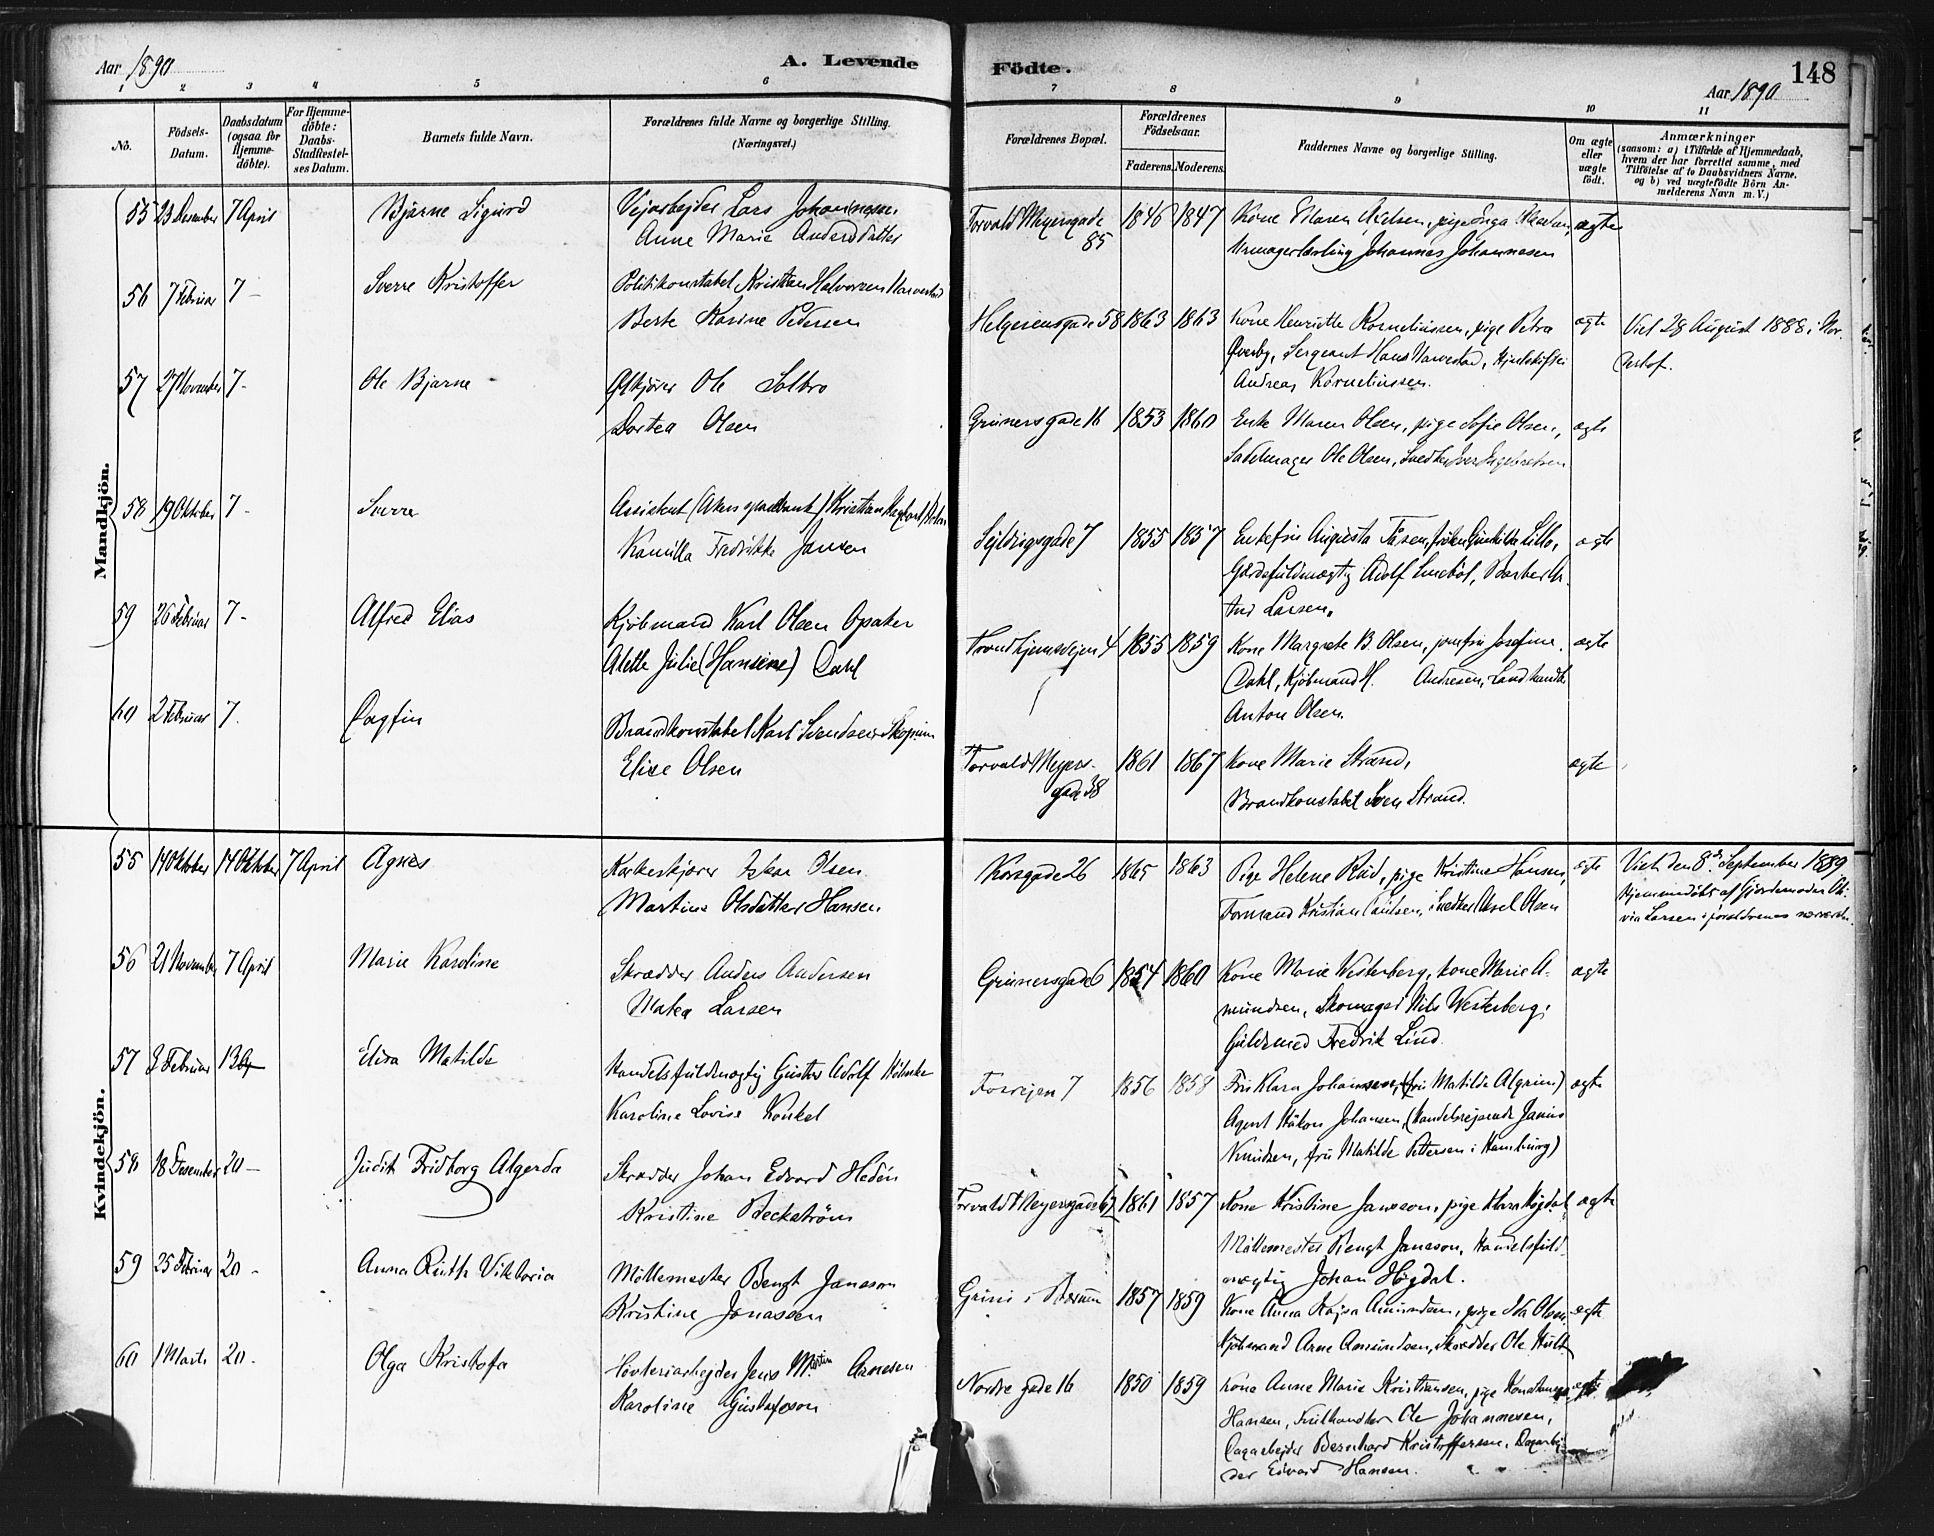 Aar 1890
A. Levende
Födte.
148
Aar 1890
1 2 3 4 5 6 7 8 9 10 11
No.
Födsels-
Datum.
Daabsdatum
(ogsaa for
Hjemme-
döbte).
For Hjemme-
döbte:
Daabs-
Stadfæstel-
ses Datum.
Barnets fulde Navn.
Forældrenes fulde Navne og borgerlige Stilling.
(Næringsvei.)
Forældrenes Bopæl.
Forældrenes
Födselsaar.
Faderens. Moderens.
Faddernes Navne og borgerlige Stilling.
Om ægte
eller
uægte
födt.
Anmærkninger
(saasom: a) i Tilfælde af Hjemmedaab,
hvem der har forrettet samme, med
Tilföielse af to Daabsvidners Navne,
og b) ved uægtefödte Börn An-
melderens Navn m. V.)
Mandkjön.
55 23 Desember 7 April Bjarne Sigurd Vejarbejder Lars Johannesen
Anne Marie Andersdatter
Torvald Meyersgade
85
1846 1847 Kone Maren Axelsen, pige Inga
Urmagerlærling Johannes Johannesen
ægte
56 7 Februar 7 - Sverre Kristoffer Politikonstabel Kristian Halvorsen Narvestad
Berte Karine Pedersen
Helgesensgade 58 1863 1863 Kone Henriette Korneliussen, pige Petra
Øverby, Sergeant Hans Narvestad,
Andreas Korneliussen.
ægte Viet 28 August 1888 i Nor-
derhof.
57 27 November 7 - Ole Bjarne Ølkjører Ole Solbro
Dortea Olsen
Grünersgade 16 1853 1860 Enke Maren Olsen, pige Sofie Olsen,
Sadelmager Ole Olsen, Snedker Iver Ingebretsen
ægte
58 19 Oktober 7 - Sverre Assistent (Akers sparebank) Kristian
Kamilla Fredrikke Jansen
Sejldugsgade 7 1855 1857 Enkefru Augusta Tåsen, frøken Gunhilda Lillo,
Gårdsfuldmægtig Adolf Smebøl, Barber Ar-
tur Larsen.
ægte
59 26 Februar 7 - Alfred Elias Kjøbmand Karl Olsen Opaker
Alette Julie (Hansine) Dahl
Trondhjemsvejen 4 1855 1859 Kone Margrete B. Olsen, jomfru Josefine
Dahl, Kjøbmand H. Andresen, Landhandler
Anton Olsen.
ægte
60 2 Februar 7 - Dagfin Brandkonstabel Karl Svendsen Skopum
Elise Olsen
Torvald Meyers-
gade 38
1861 1867 Kone Marie Strand,
Brandkonstabel Sven Strand.
ægte
Kvindekjön.
55 14 Oktober 14 Oktober 7 April Agnes Karkeskjører Oskar Olsen
Martine Olsdatter Hansen
Korsgade 26 1865 1863 Pige Helene Rud, pige Kristine Hansen,
Formand Kristian Paulsen, Snedker Aksel Olsen
ægte Viet den 8de September 1889
Hjemmedøbt af Gjordemoder Oli-
via Larsen i forældrenes nærværelse.
56 21 November 7 April Marie Karoline Skrædder Anders Andersen
Matea Larsen
Grünersgade 6 1854 1860 Kone Marie Westerberg, kone Marie A-
mundsen, Skomager Nils Westerberg,
Guldsmed Fredrik Lind.
ægte
57 8 Februar 13 Elisa Matilde Handelsfuldmægtig Gustav Adolf
Karoline Lovise Konkel
Fossvejen 7 1856 1858 Fru Klara Johansen, (fru Matilde Algrim)
Agent Håkon Johansen, (Handelsrejsende Janus
Knudsen, fru Matilde Pettersen i Hamburg)
ægte
58 18 Desember 20 - Judit Fridborg Algerda Skrædder Johan Edvard Hedén
Kristine Beckström
Torvald Meyersgade 67 1861 1857 Kone Kristine Jansson, pige Klara Høgdal,
Møllemester Bengt Jansson, Handelsfuld-
mægtig Johan Høgdal.
ægte
59 25 Februar 20 - Anna Ruth Viktoria Møllemester Bengt Jansson
Kristine Jonassen
Grini i Bærum 1857 1859 Kone Anna Kajsa Amundsen, pige Ida Olsen,
Kjøbmand Arne Amundsen, Skrædder Ole Hult
ægte
60 1 Marts 20 - Olga Kristofa Høvleriarbejder Jens Martin Arnesen
Karoline Gustafsson
Nordre gade 16 1850 1859 Kone Anne Marie Kristiansen, pige Konstanse
Hansen, Ole Johannesen,
Dagarbejder Bernhard Kristoffersen, Dagarbej-
der Edvard Hansen.
ægte